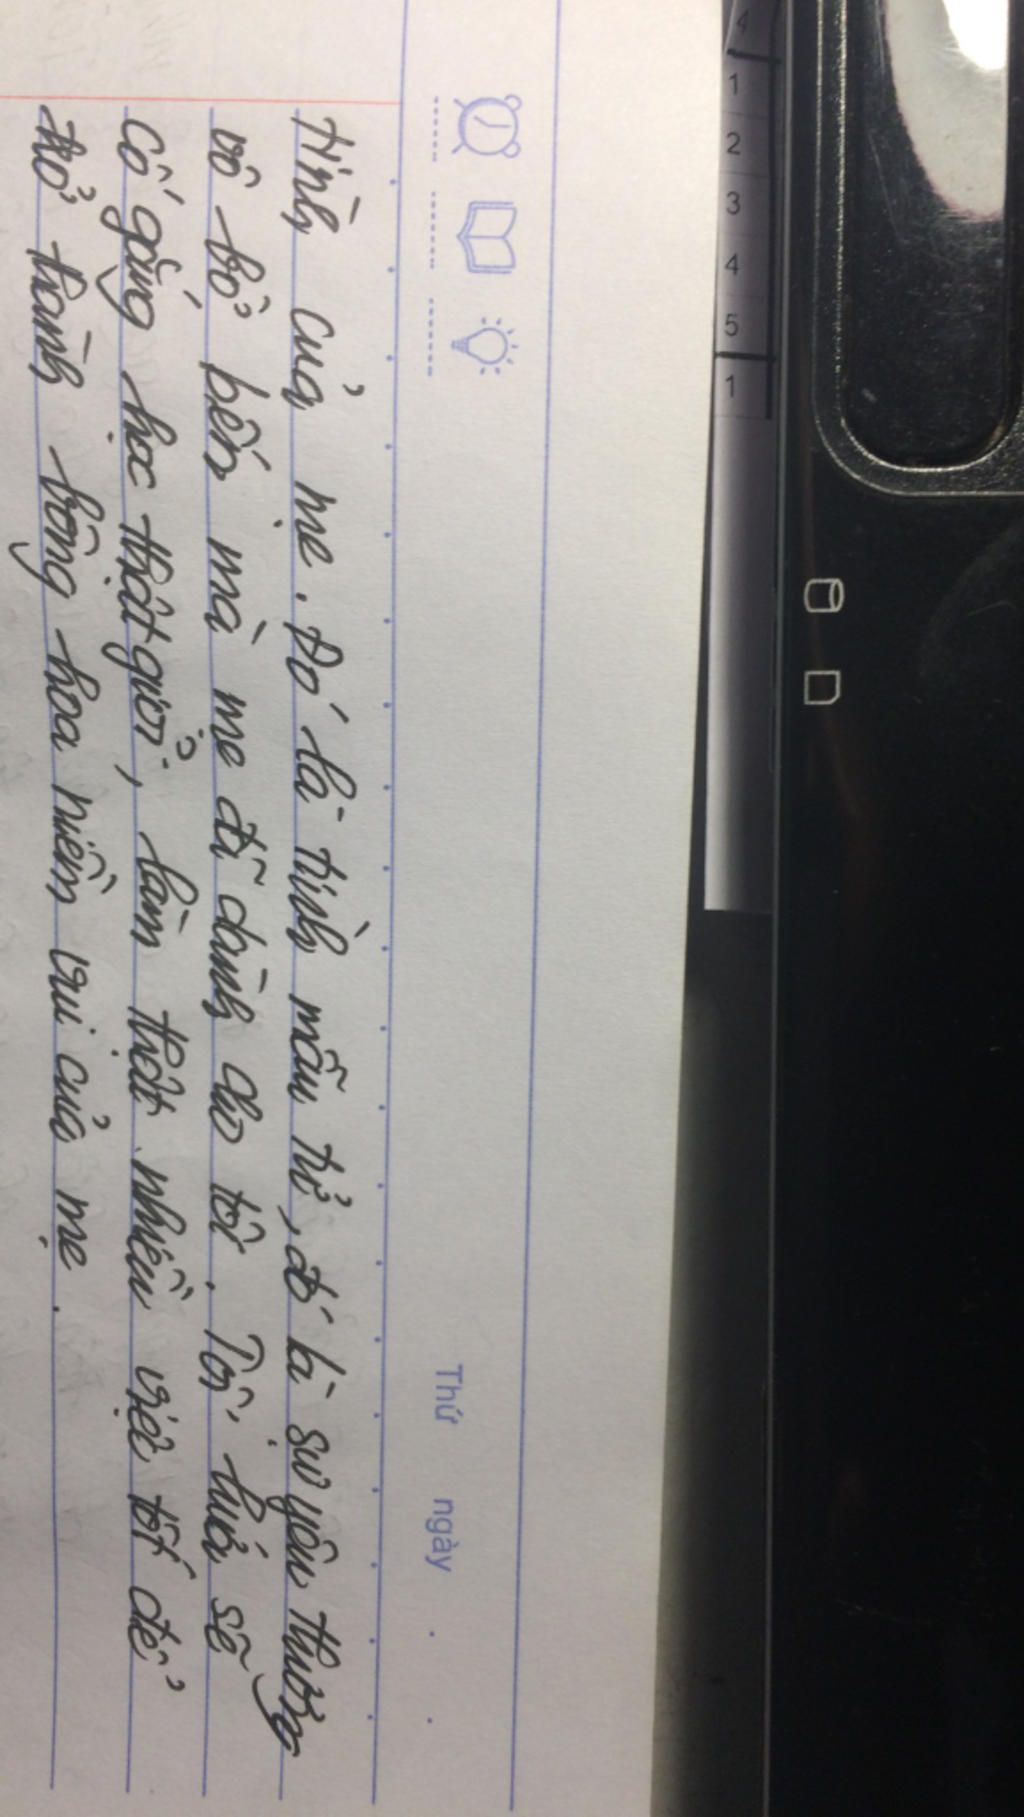 4 1 2 3 4 5 1
Thứ ngày . .
tình của mẹ. Đó là tình mẫu tử, đó là sự yêu thương
vô bờ bến mà mẹ đã dành cho tôi. Tôi hứa sẽ
cố gắng học thật giỏi, làm thật nhiều việc tốt để
trở thành bông hoa niềm vui của mẹ.